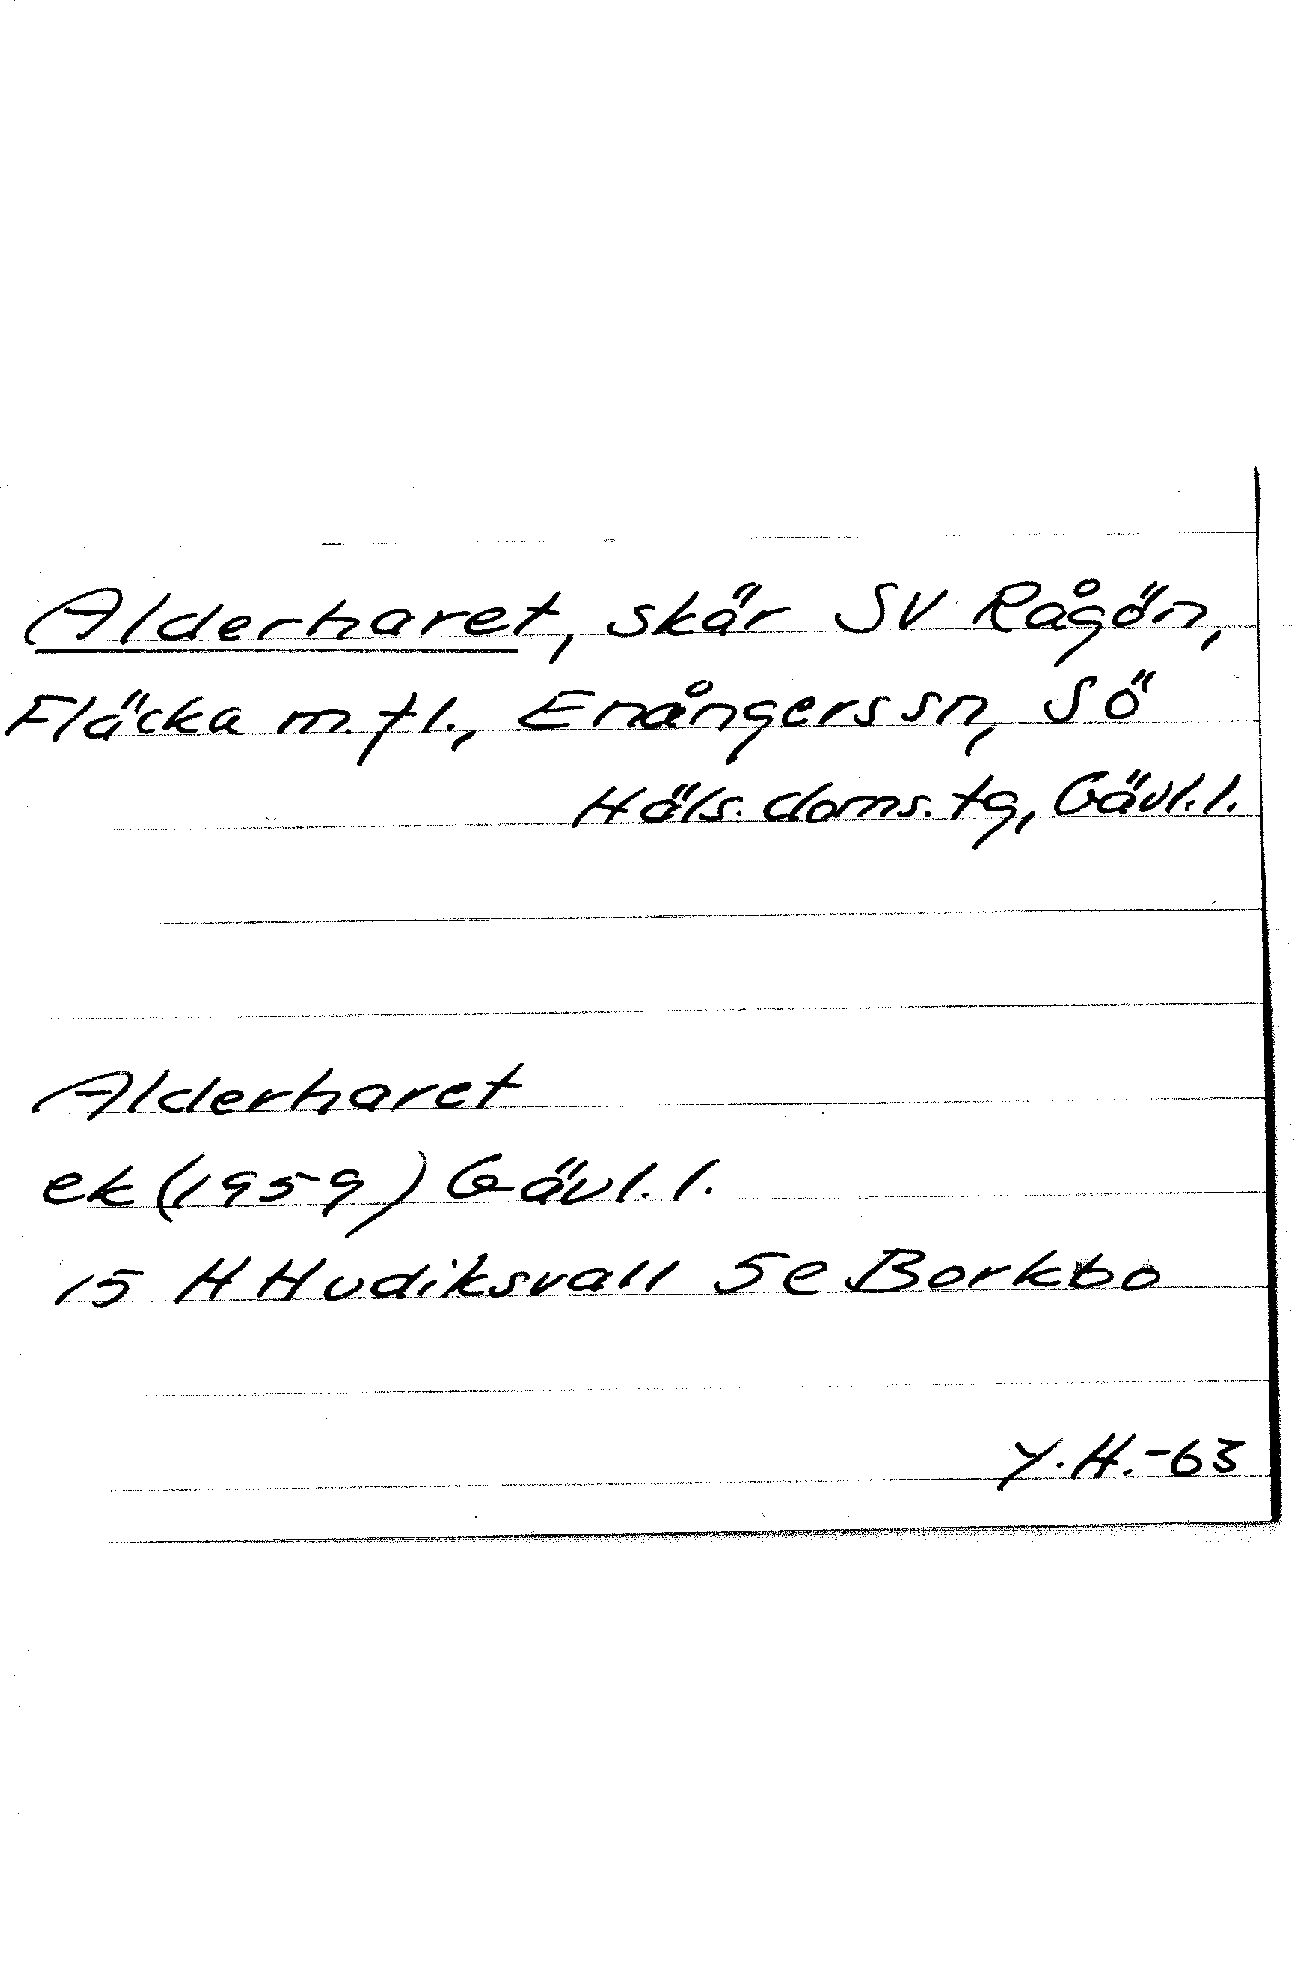 Alderharet, skär SV Rågön,
Fläcka m.fl., Enångers sn, Sö
Häls. doms. tg, Gävl.l.
Alderharet
ek (1959) Gävl. l.
15 H Hudiksvall 5e Borkbo
Y.H.-63